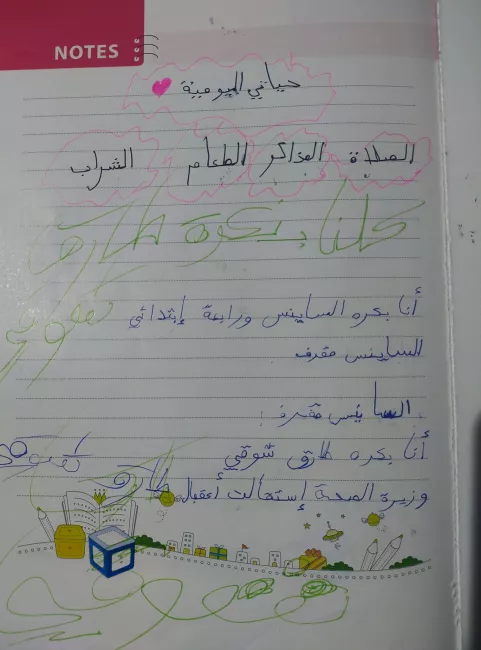 NOTES
حياتي اليومية
الصلاة المذاكر الطعام الشراب
كلنا بنكره طارق
أنا بكره الساينس ورابعة إبتدائي
الساينس مقرف
الساينس مقرف
أنا بكره طارق شوقي
وزيرة الصحة إستقالت أعقبال طارق